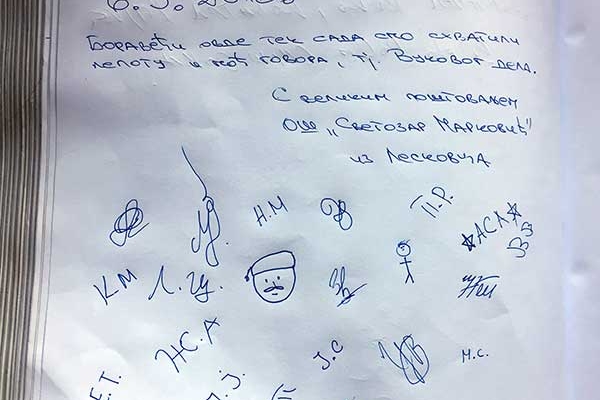 Боравећи овде тек сада смо схватили
лепоту и моћ говора, тј. Вуковог дела.
С великим поштовањем
ОШ „Светозар Марковић"
из Лесковца
Н.М
П.Р.
АСЛ
КМ
Л. Чу.
Ж.С.А
Ј.С
М.С.
Е.Т.